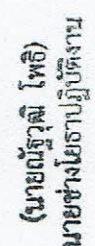 (นายณัฐวุฒิ โพธิ)
นายช่างโยธาปฏิบัติงาน